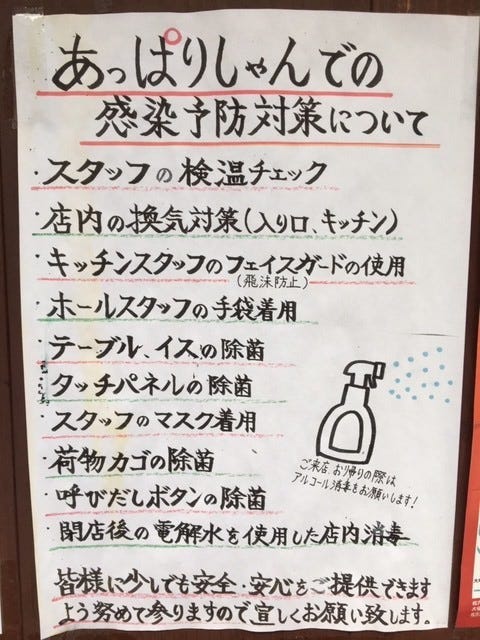 あっぱりしゃんでの
感染予防対策について
・スタッフの検温チェック
・店内の換気対策(入り口、キッチン)
・キッチンスタッフのフェイスガードの使用
(飛沫防止)
・ホールスタッフの手袋着用
・テーブル、イスの除菌
・タッチパネルの除菌
・スタッフのマスク着用
・荷物カゴの除菌
・呼びだしボタンの除菌
・閉店後の電解水を使用した店内消毒
ご来店、お帰りの際は
アルコール消毒をお願いします!
皆様に少しでも安全・安心をご提供できます
よう努めて参りますので宜しくお願い致します。